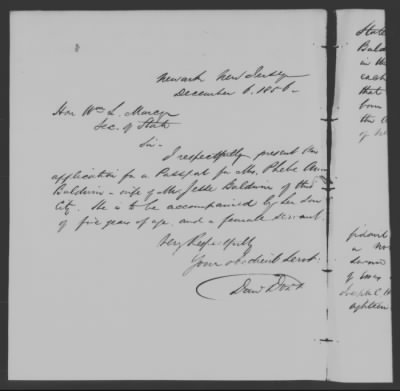 Newark New Jersey
December 6, 1856.
Hon Wm L. Marcy
Sec. of State
Sir.
I respectfully present this
application for a Passport for Mrs. Phebe Ann
Baldwin - wife of Mr Jesse Baldwin of this
City. She is to be accompanied by her son
of five years of age, and a female servant.
Very Respectfully
Your obedient Servt.
State
Baldw
in th
that
born
this
of
a
of